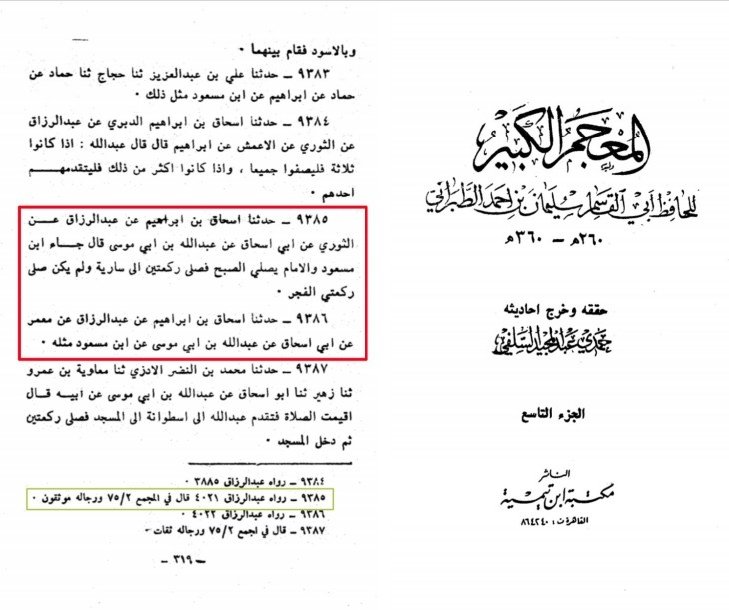 وبالاسود فقام بينهما ٠
٩٣٨٣ ــ حدثنا علي بن عبدالعزيز ثنا حجاج ثنا حماد عن
حماد عن ابراهيم عن ابن مسعود مثل ذلك ٠
٩٣٨٤ ــ حدثنا اسحاق بن ابراهيم الدبري عن عبدالرزاق
عن الثوري عن الاعمش عن ابراهيم قال قال عبدالله : اذا كانوا
ثلاثة فليصفوا جميعا ، واذا كانوا اكثر من ذلك فليتقدمهم
احدهم ٠
٩٣٨٥ ــ حدثنا اسحاق بن ابراهيم عن عبدالرزاق عن
الثوري عن ابي اسحاق عن عبدالله بن ابي موسى قال جاء ابن
مسعود والامام يصلي الصبح فصلى ركعتين الى سارية ولم يكن صلى
ركعتي الفجر ٠
٩٣٨٦ ــ حدثنا اسحاق بن ابراهيم عن عبدالرزاق عن معمر
عن ابي اسحاق عن عبدالله بن ابي موسى عن ابن مسعود مثله ٠
٩٣٨٧ ــ حدثنا محمد بن النضر الازدي ثنا معاوية بن عمرو
ثنا زهير ثنا ابو اسحاق عن عبدالله بن ابي موسى عن ابيه قال
اقيمت الصلاة فتقدم عبدالله الى اسطوانة الى المسجد فصلى ركعتين
ثم دخل المسجد ٠
٩٣٨٤ ــ رواه عبدالرزاق ٣٨٨٥ ٠
٩٣٨٥ ــ رواه عبدالرزاق ٤٠٢١ قال في المجمع ٧٥/٢ ورجاله موثقون ٠
٩٣٨٦ ــ رواه عبدالرزاق ٤٠٢٢ ٠
٩٣٨٧ ــ قال في اجمع ٧٥/٢ ورجاله ثقات ٠
ــ ٣١٩ ــ
المعجم الكبير
للحافظ أبي القاسم سليمان بن احمد الطبراني
٢٦٠هـ ــ ٣٦٠هـ
حققه وخرج احاديثه
حمدي عبد المجيد السلفي
الجزء التاسع
الناشر
مكتبة ابن تيمية
القاهرة ت : ٨٦٤٢٤٠